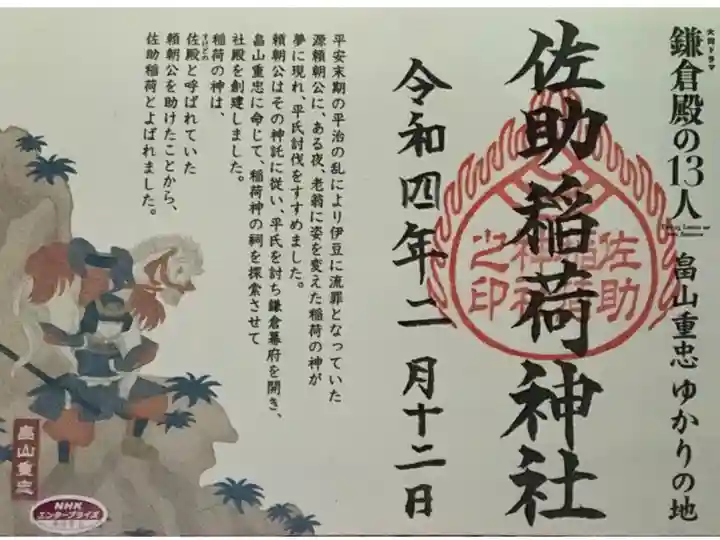 大河ドラマ
鎌倉殿の13人 畠山重忠 ゆかりの地
佐助稲荷神社
佐助
稲荷
神社
之印
令和四年二月十二日
平安末期の平治の乱により伊豆に流罪となっていた
源頼朝公に、ある夜、老翁に姿を変えた稲荷の神が
夢に現れ、平氏討伐をすすめました。
頼朝公はその神託に従い、平氏を討ち鎌倉幕府を開き、
畠山重忠に命じて、稲荷神の祠を探索させて
社殿を創建しました。
稲荷の神は、
すけどの
佐殿と呼ばれていた
頼朝公を助けたことから、
佐助稲荷とよばれました。
畠山重忠
NHK
エンタープライズ